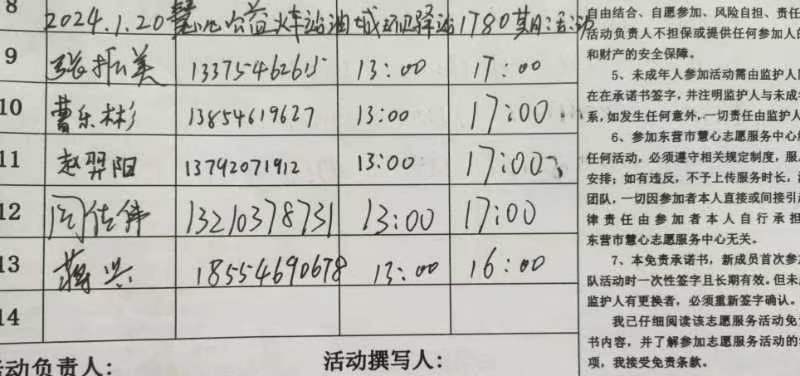 8
2024.1.20慧心公益火车站油城环卫驿站1780期:主动
9 张振美 13375462615 13:00 17:00
10 曹乐彬 13854619627 13:00 17:00
11 赵羿阳 13792071912 13:00 17:00
12 闫佳伟 13210378731 13:00 17:00
13 蒋兴 18554690678 13:00 16:00
14
活动负责人: 活动撰写人:
自由结合、自愿参加、风险自担、责任
活动负责人不担保或提供任何参加人的
和财产的安全保障。
5、未成年人参加活动需由监护人
在在承诺书签字,并注明监护人与未成
系,如发生任何意外,一切责任由监护人
6、参加东营市慧心志愿服务中心
任何活动,必须遵守相关规定制度,服
安排;如有违反,不予上传服务时长,
团队,一切因参加者本人直接或间接引
律责任由参加者本人自行承担
东营市慧心志愿服务中心无关。
7、本免责承诺书,新成员首次参
队活动时一次性签字且长期有效。但未
监护人有更换者,必须重新签字确认。
我已仔细阅读该志愿服务活动免
书内容,并了解参加志愿服务活动的
项,我接受免责条款。